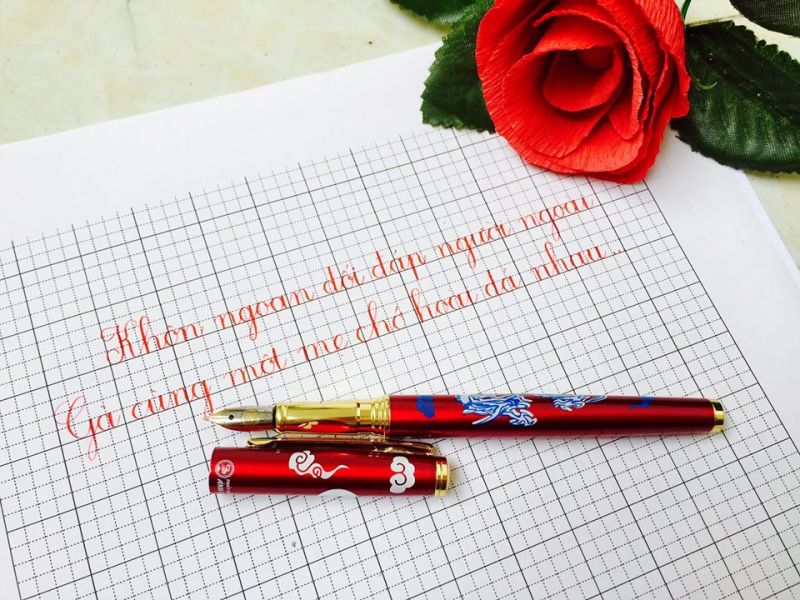 Khôn ngoan đối đáp người ngoài
Gà cùng một mẹ chớ hoài đá nhau...